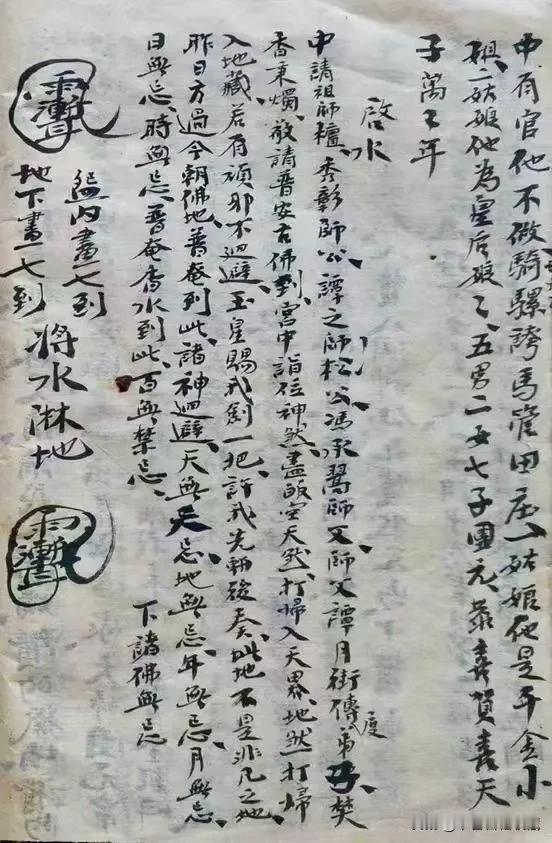 中有官他不做騎騾誇馬管田庄一姑娘他是千金小
姐二姑娘他為皇后娘々五男二女七子團元恭喜賀喜天
子萬々年
啓水
申請祖師檀秀彰師公譚之師松公馮承詔師父師父譚月街傳度弟子焚
香秉燭敬請普安古佛到宮中詣位神煞盡皈空天煞打掃入天界地煞打掃
入地藏若有頑邪不迴避玉皇賜我劍一把許我先斬後奏此地不是非凡之地
昨日方過今朝佛地普庵到此諸神迴避天無天忌地無忌年無忌月無忌
日無忌時無忌普庵香水到此百無禁忌
下諸佛無忌
盆內畫一七到
地下畫一七到 將水淋地